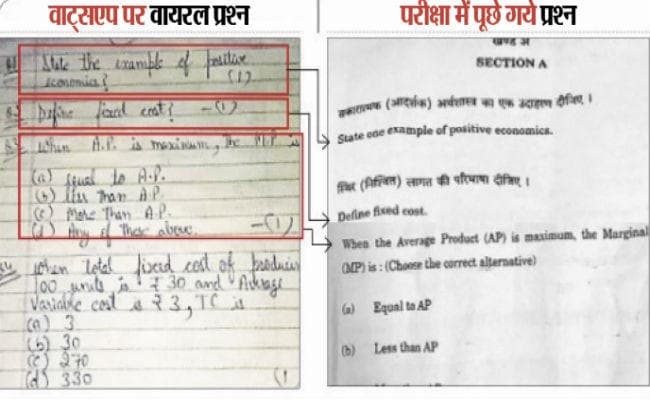 वाट्सएप पर वायरल प्रश्न
State the example of positive
economics? (1)
Q.2 Define fixed cost? -(1)
When A.P. is maximum, the M.P is
(a) Equal to A.P.
(b) less Than A.P
(c) More Than A.P.
(d) Any of these above. -(1)
When total fixed cost of producing
100 units is ₹ 30 and Average
Variable cost is ₹ 3, TC is
(a) 3
(b) 30
(c) 270
(d) 330 (1
परीक्षा में पूछे गये प्रश्न
खण्ड अ
SECTION A
सकारात्मक (आदर्शक) अर्थशास्त्र का एक उदाहरण दीजिए ।
State one example of positive economics.
स्थिर (निश्चित) लागत की परिभाषा दीजिए ।
Define fixed cost.
When the Average Product (AP) is maximum, the Marginal
(MP) is : (Choose the correct alternative)
(a) Equal to AP
(b) Less than AP